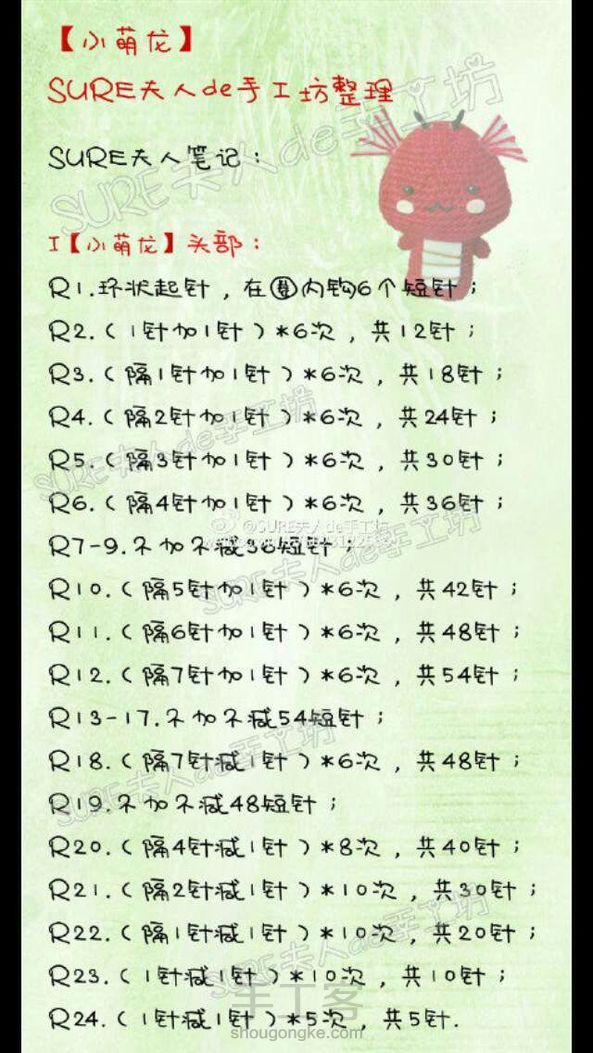 【小萌龙】
SURE夫人de手工坊整理
SURE夫人笔记：
I【小萌龙】头部：
R1.环状起针，在圈内钩6个短针；
R2.（1针加1针）*6次，共12针；
R3.（隔1针加1针）*6次，共18针；
R4.（隔2针加1针）*6次，共24针；
R5.（隔3针加1针）*6次，共30针；
R6.（隔4针加1针）*6次，共36针；
@SURE夫人de手工坊
R7-9.不加不减36短针；
R10.（隔5针加1针）*6次，共42针；
R11.（隔6针加1针）*6次，共48针；
R12.（隔7针加1针）*6次，共54针；
R13-17.不加不减54短针；
R18.（隔7针减1针）*6次，共48针；
R19.不加不减48短针；
R20.（隔4针减1针）*8次，共40针；
R21.（隔2针减1针）*10次，共30针；
R22.（隔1针减1针）*10次，共20针；
R23.（1针减1针）*10次，共10针；
R24.（1针减1针）*5次，共5针.
手工客
shougongke.com